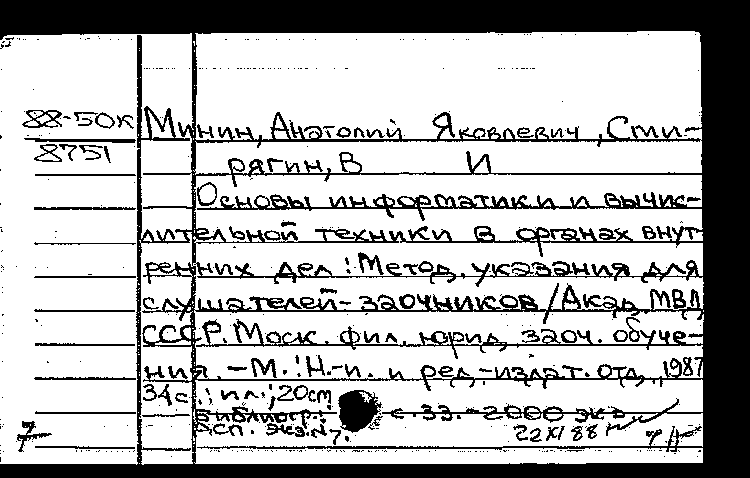 88-50к Минин, Анатолий Яковлевич, Сми-
8751
рягин, В И
Основы информатики и вычис-
лительной техники в органах внут
ренних дел : Метод. указания для
слушателей-заочников / Акад. МВД
СССР. Моск. фил. юрид. заоч. обуче-
ния. - М. : Н.-и. и ред.-издат. отд., 1987
34 с. : ил. ; 20 см
Библиогр.: с. 33. - 2000 экз.
экз. N 7. 22 XI 88
7